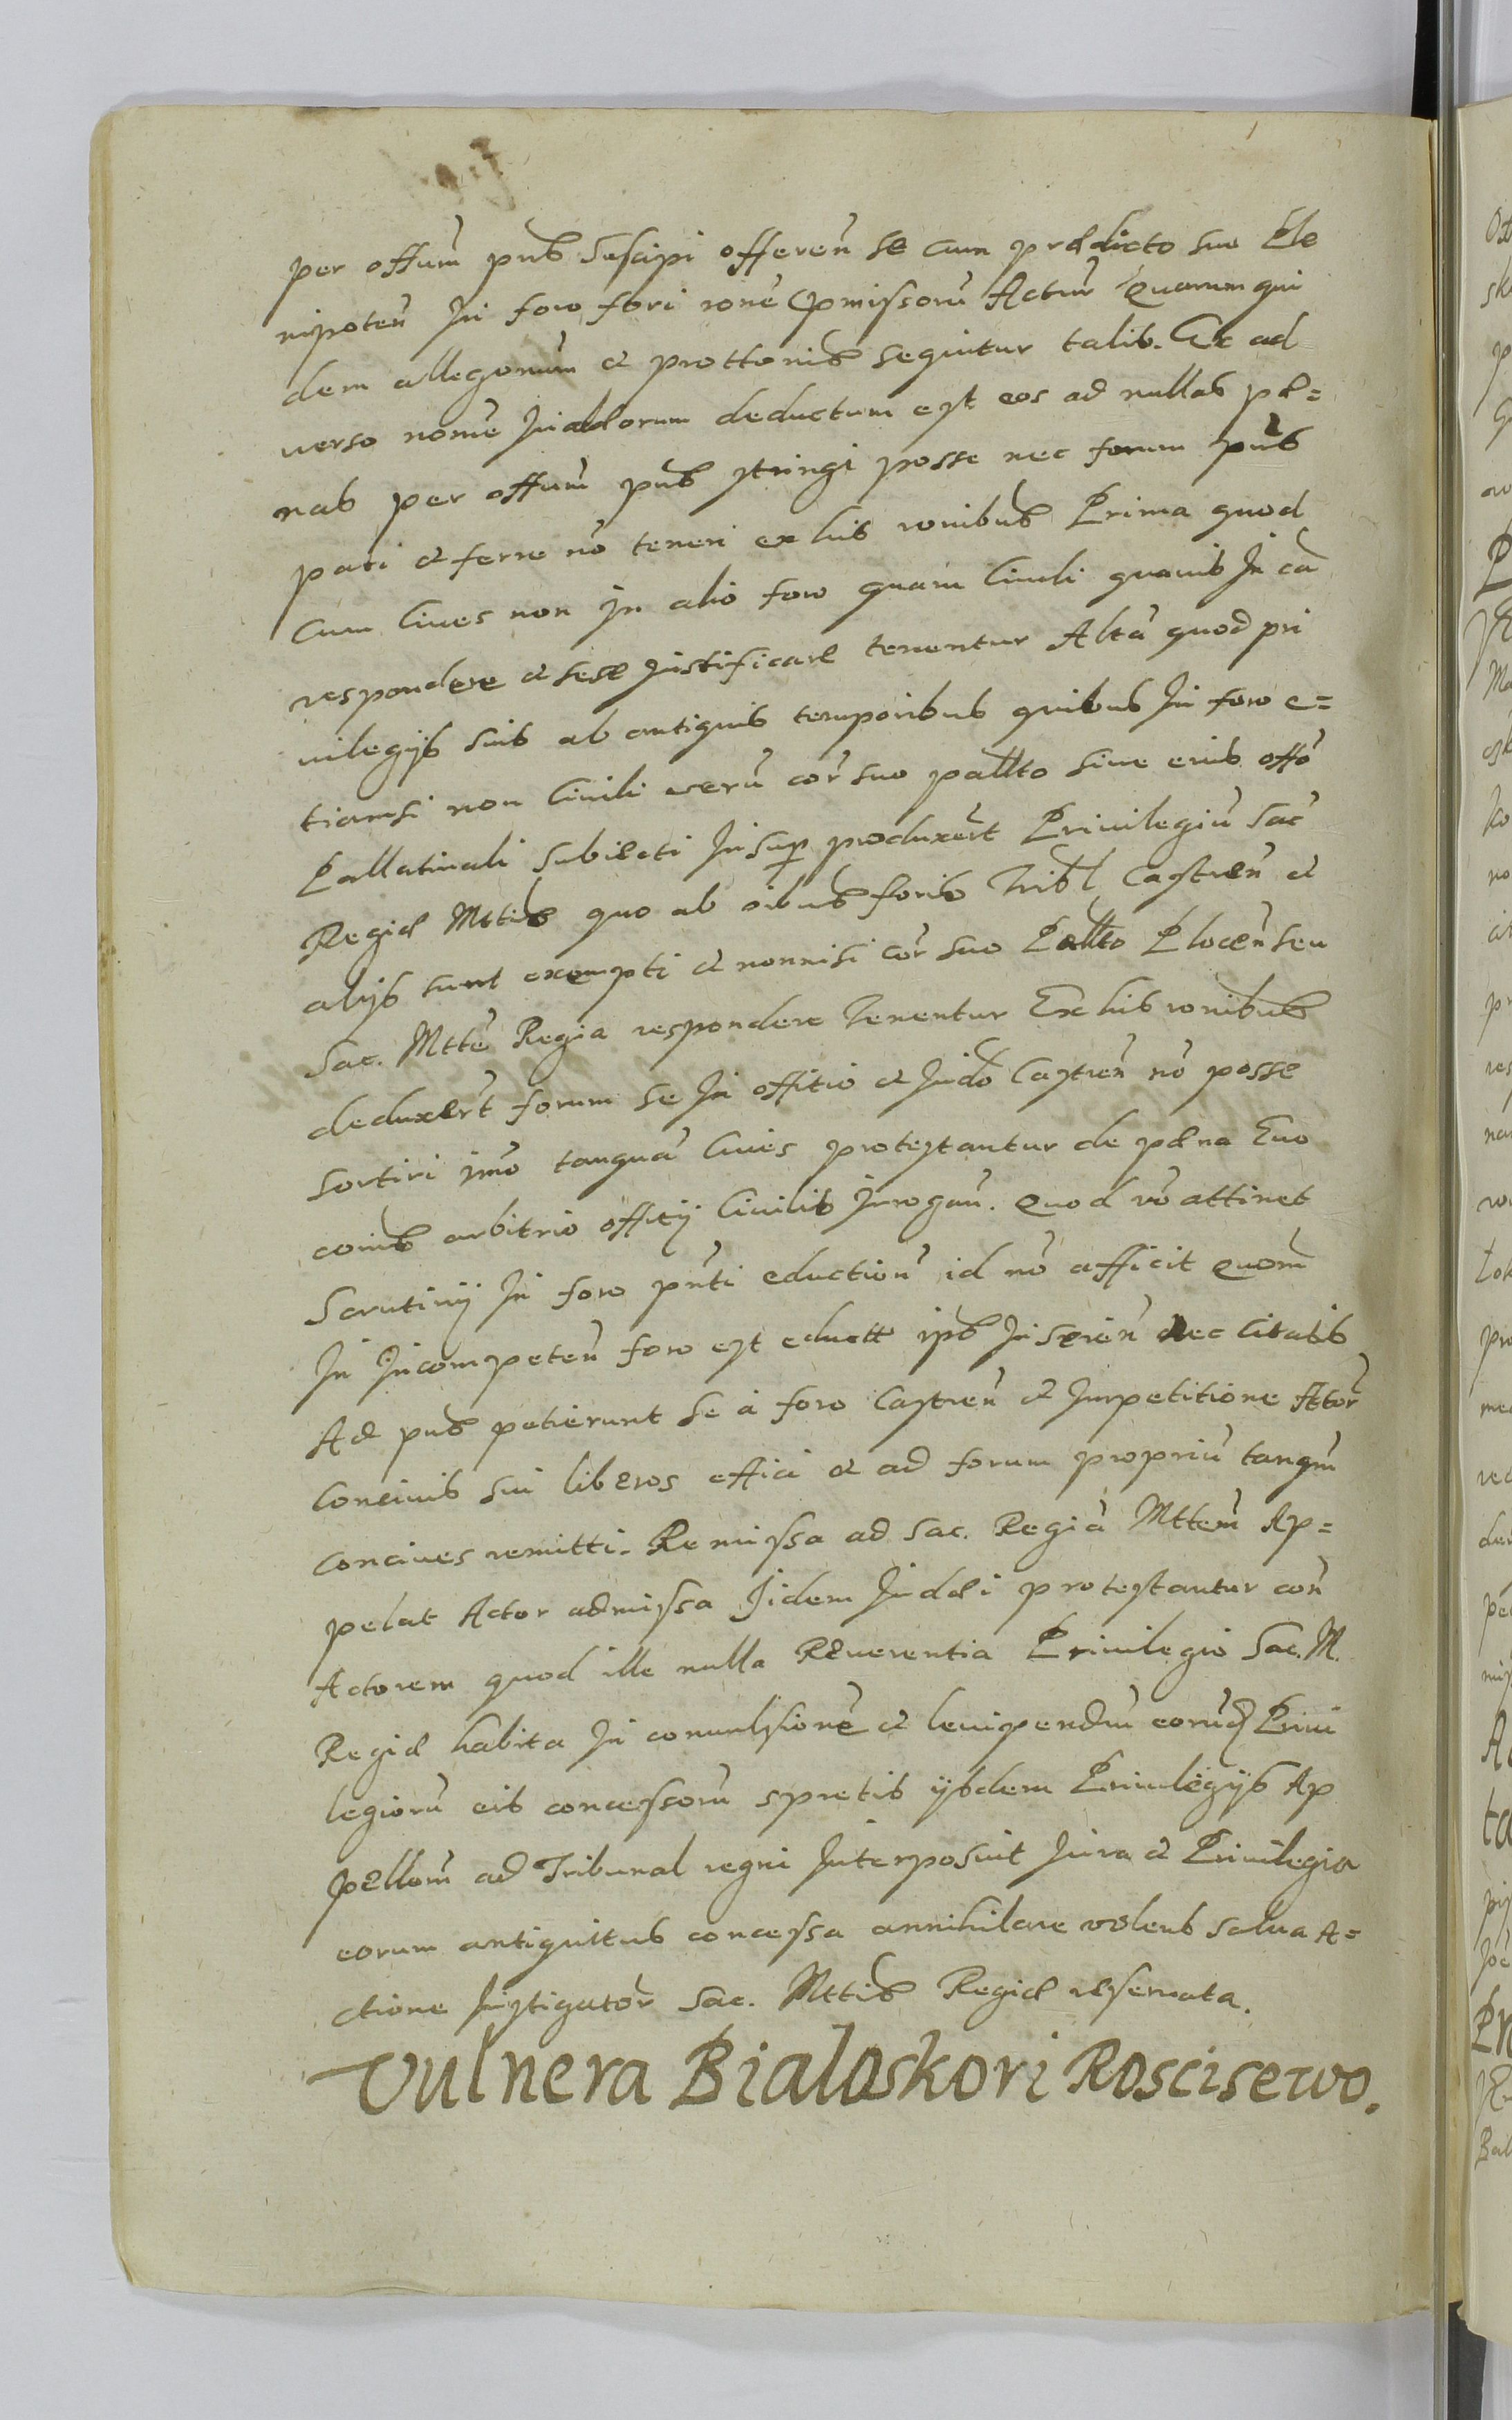 per offum̃ pñs suscipi offereñ se cum prædicto suo Ple
nipoteñ In foro fori rone pmissorũ Actur̃ Quarum qui
dem allegonum et prottonis sequitur talis. Ex ad
uerso nomẽ Iudæorum deductum est eos ad nullas pæ=
nas per offum̃ pñs stringi posse nec forum pñs
pati et ferre nõ teneri ex his ronibus Prima quod
Cum Ciues non in alio foro quam Ciuili quauis In cã
respondere et sese Justificare tenentur Altã quod pri
uilegijs suis ab antiquis temporibus quibus In foro e=
tiamsi non Ciuili uerũ cor̃ suo pallto siue eius offõ
Pallatinali subiecti Insup produxert̃ Priuilegiũ Sac̃
Regiæ Mttis quo ab oibus foris Tribl Castreñ et
alijs sunt exempti et nonnisi cor̃ suo Pallto Ploceñ seu
Sac. Mttẽ Regia respondere Tenentur Ex his ronibus
deduxert̃ forum se In offitio et Iudõ Castreñ nõ posse
sortiri imõ tanquã Ciues protestantur de pæna Euo
coñis arbitrio offitij Ciuilis Irrogañ. Quod võ attinet
Scrutinij In foro pñti eductioñ id nõ afficit Quom̃
In Incompeteñ foro est eductt ips Inscieñ nec Citatis
Ad pñs petierunt se à foro Castreñ et Impetitione Attor̃
Conciuis sui liberos effici et ad forum propriũ tanqm̃
conciues remitti. Remissa ad Sac. Regiã Mttem̃ Ap=
pelat Actor admissa Iidem Iudæi protestantur coñ
Actorem quod ille nulla Reuerentia Priuilegio Sac. M.
Regiæ habita In conuulsionẽ et leuipendiũ eorũd Priui
legiorũ eis concessorũ spretis ijsdem Priuilegijs Ap
pellom̃ ad Tribunal regni Interposuit Iura et Priuilegia
eorum antiquitus concessa annihilare volens Salua A=
ctione Instigator̃ Sac. Mttis Regiæ reseruata.
Vulnera Bialoskori Roscisewo.